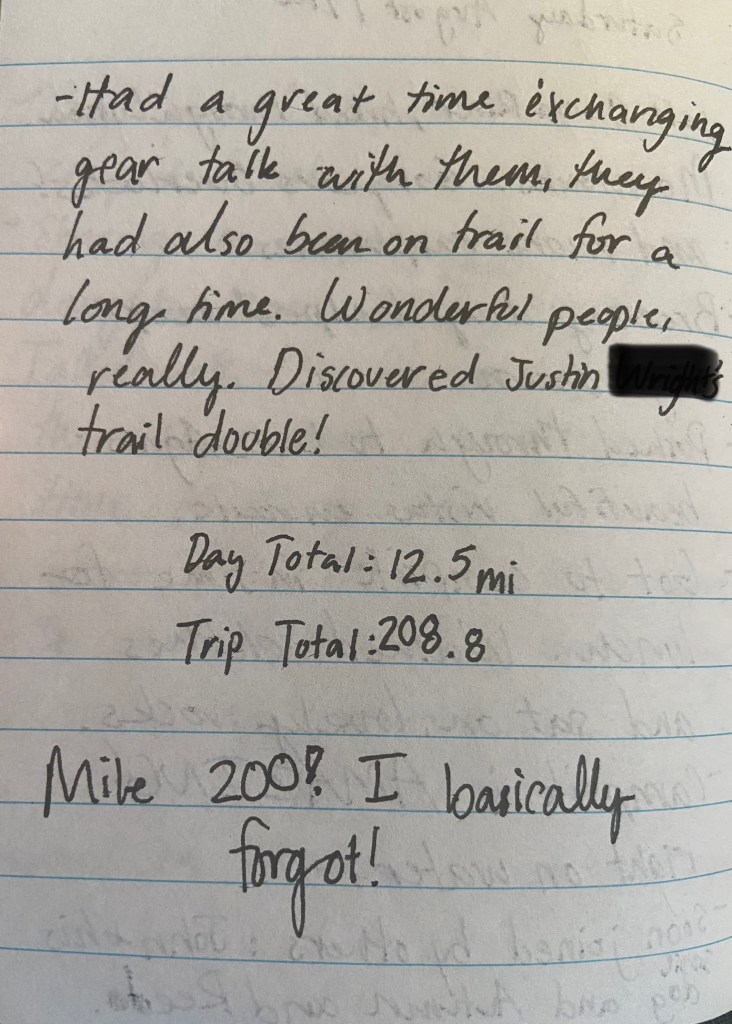 -Had a great time exchanging
gear talk with them, they
had also been on trail for a
long time. Wonderful people,
really. Discovered Justin
trail double!
Day Total: 12.5 mi
Trip Total: 208.8
Mile 200!? I basically
forgot!